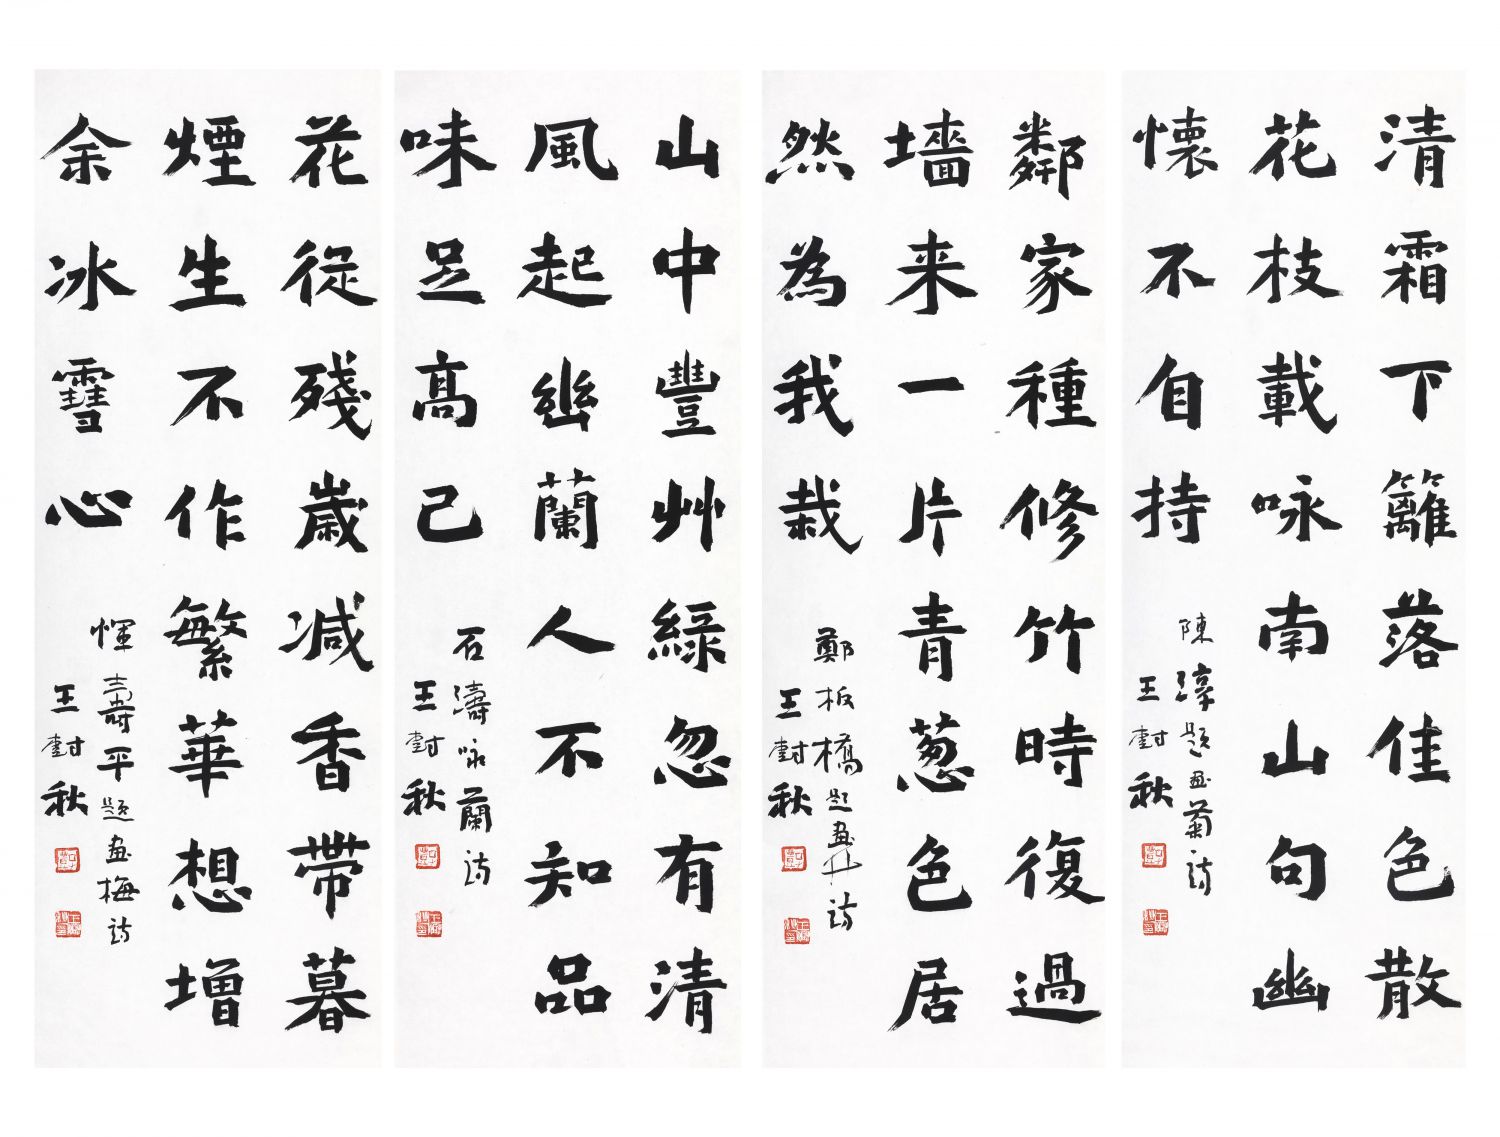 清霜下籬落佳色散
花枝載咏南山句幽
懷不自持
陳淳題画菊诗
王封秋
鄰家種修竹時復過
墻来一片青葱色居
然為我栽
鄭板橋題画竹诗
王封秋
山中豐艸綠忽有清
風起幽蘭人不知品
味足高己
石濤咏蘭诗
王封秋
花從殘歲減香帶暮
煙生不作繁華想增
余冰雪心
惲壽平題画梅诗
王封秋